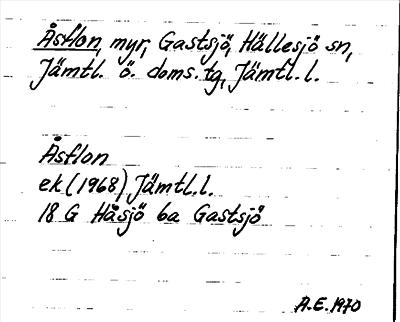 Åsflon, myr, Gastsjö, Hällesjö sn,
Jämtl. ö. doms. tg, Jämtl. l.
Åsflon
ek (1968) Jämtl. l.
18 G Håsjö 6a Gastsjö
A.E. 1970